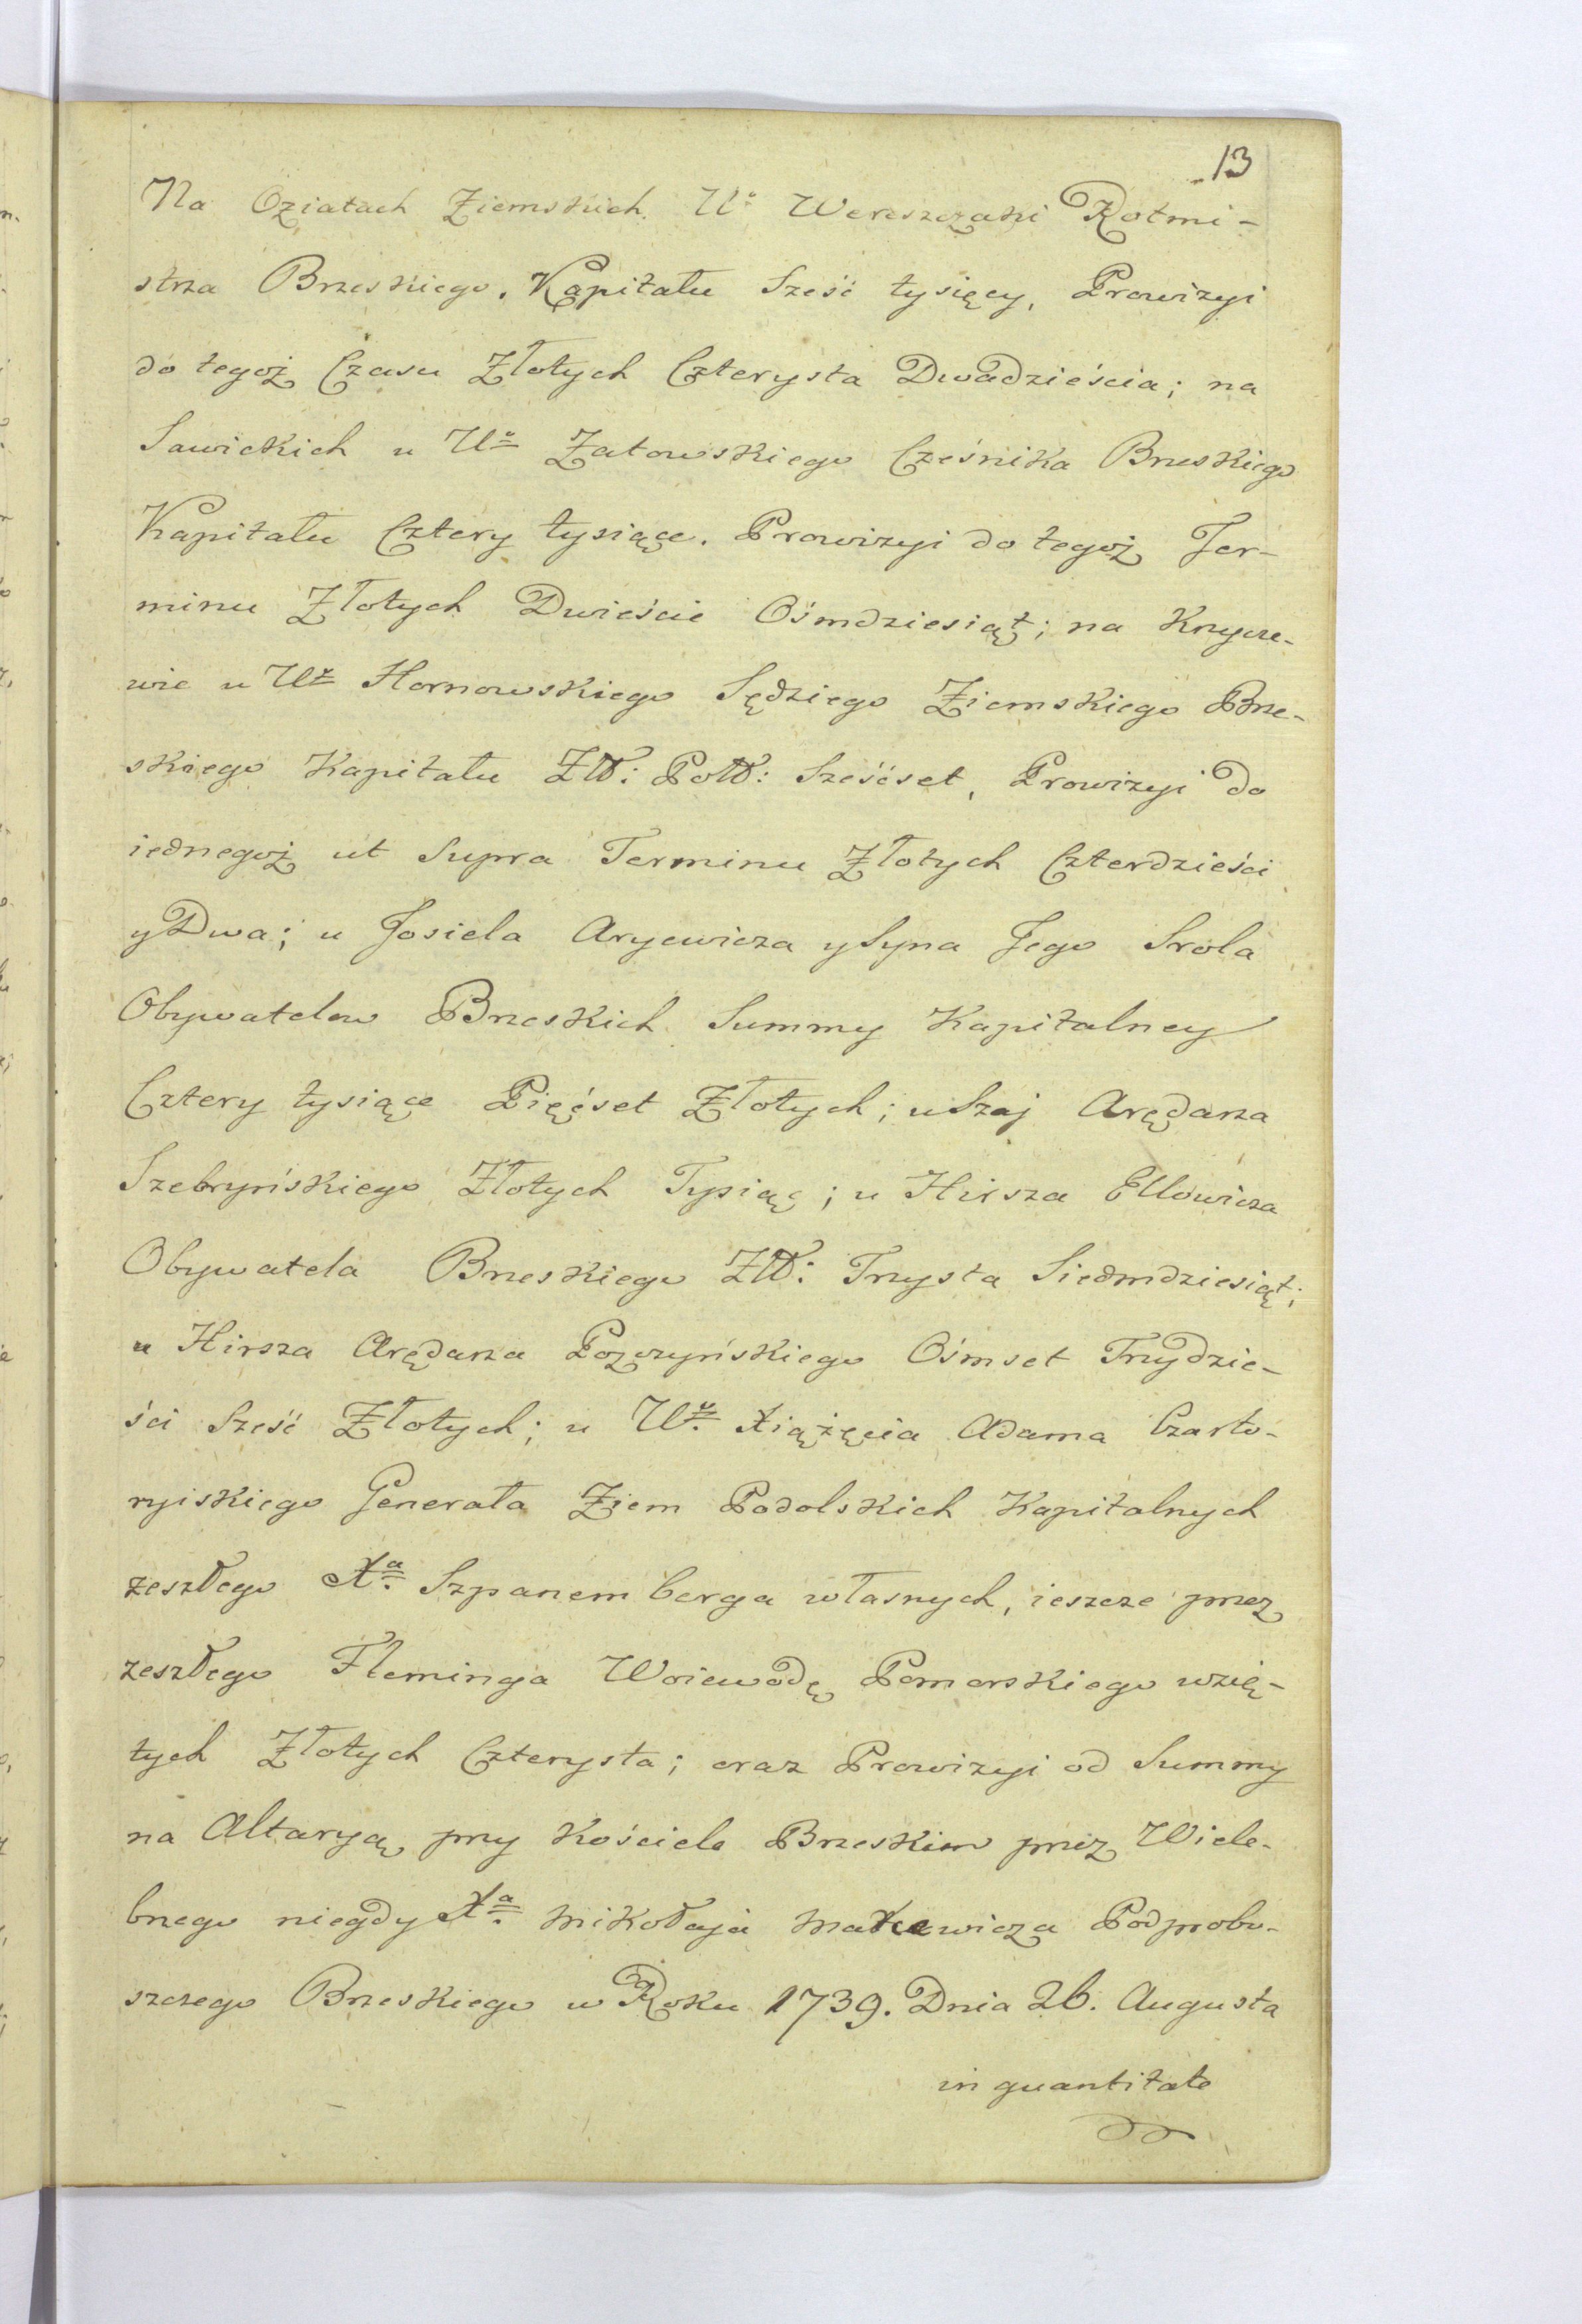 13
Na Oziatach Ziemskich Uº Wereszczaki Rotmi-
strza Brzeskiego. Kapitału Sześć tysięcy, Prowizyi
do tegoż Czasu Złotych Czterysta Dwadzieścia; na
Sawickich u Uº Załowskiego Cześnika Brzeskiego
Kapitału Cztery tysiące. Prowizyi do tegoż Ter-
minu Złotych Dwieście Ośmdziesiąt; na Krzycze-
wie u Uº Hornowskiego Sędziego Ziemskiego Brze-
skiego Kapitału Złł: Poll: Sześćset, Prowizyi do
iednegoż ut Supra Terminu Złotych Czterdzieści
y Dwa; u Josiela Aryewicza y Syna Jego Srola
Obywatelow Brzeskich Summy Kapitalney
Cztery tysiące Pięćset Złotych; u Szaj Arędarza
Szebryńskiego Złotych Tysiąc; u Hirsza Ellowicza
Obywatela Brzeskiego Złł: Trzysta Siedmdziesiąt;
u Hirsza Arędarza Pozczyńskiego Ośmset Trzydzie-
ści Sześć Złotych; u Uº Xiążęcia Adama Czarto-
ryiskiego Generała Ziem Podolskich Kapitalnych
zeszłego Xª Szpanemberga własnych, ieszcze przez
zeszłego Fleminga Woiewodę Pomorskiego wzię-
tych Złotych Czterysta; oraz Prowizyi od Summy
na Altaryą przy Kościele Brzeskim przez Wiele-
bnego niegdy Xª Mikołaja Makewicza Podprobo-
szczego Brzeskiego w Roku 1739. Dnia 26. Augusta
in quantitate